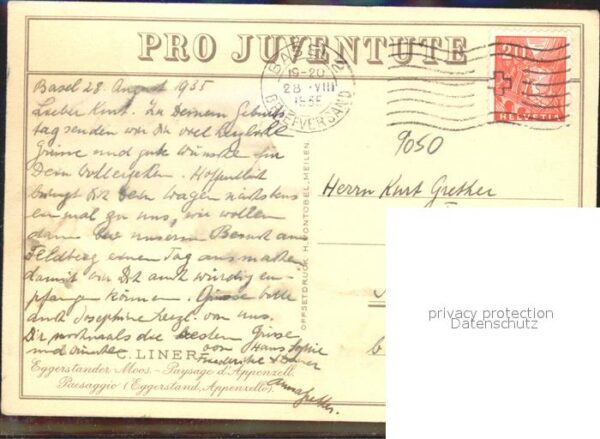 PRO JUVENTUTE
BASEL
19-20
28 VIII
1935
BRIEFVERSAND
20
HELVETIA
Basel 28. August 1935
Lieber Kurt. Zu Deinem Geburts
tag senden wir Dir viel
Grüsse und gute Wünsche für
Dein Wohlergehen. Hoffentlich
bringt Dich dein Wagen nächstens
einmal zu uns, wir wollen
dann bei unserem Besuch am
Feldberg einen Tag ausmachen
damit wir Dich auch würdig em-
pfangen können. Grüsse bitte
auch Josephine herzl. von uns.
Dir nochmals die besten Grüsse
und Wünsche von Hans Sophie
Friederike
Anna Grether.
C. LINER
Eggerstander Moos. - Paysage d'Appenzell.
Paesaggio (Eggerstand, Appenzello).
OFFSETDRUCK H. VONTOBEL, MEILEN.
9050
Herrn Kurt Grether
privacy protection
Datenschutz